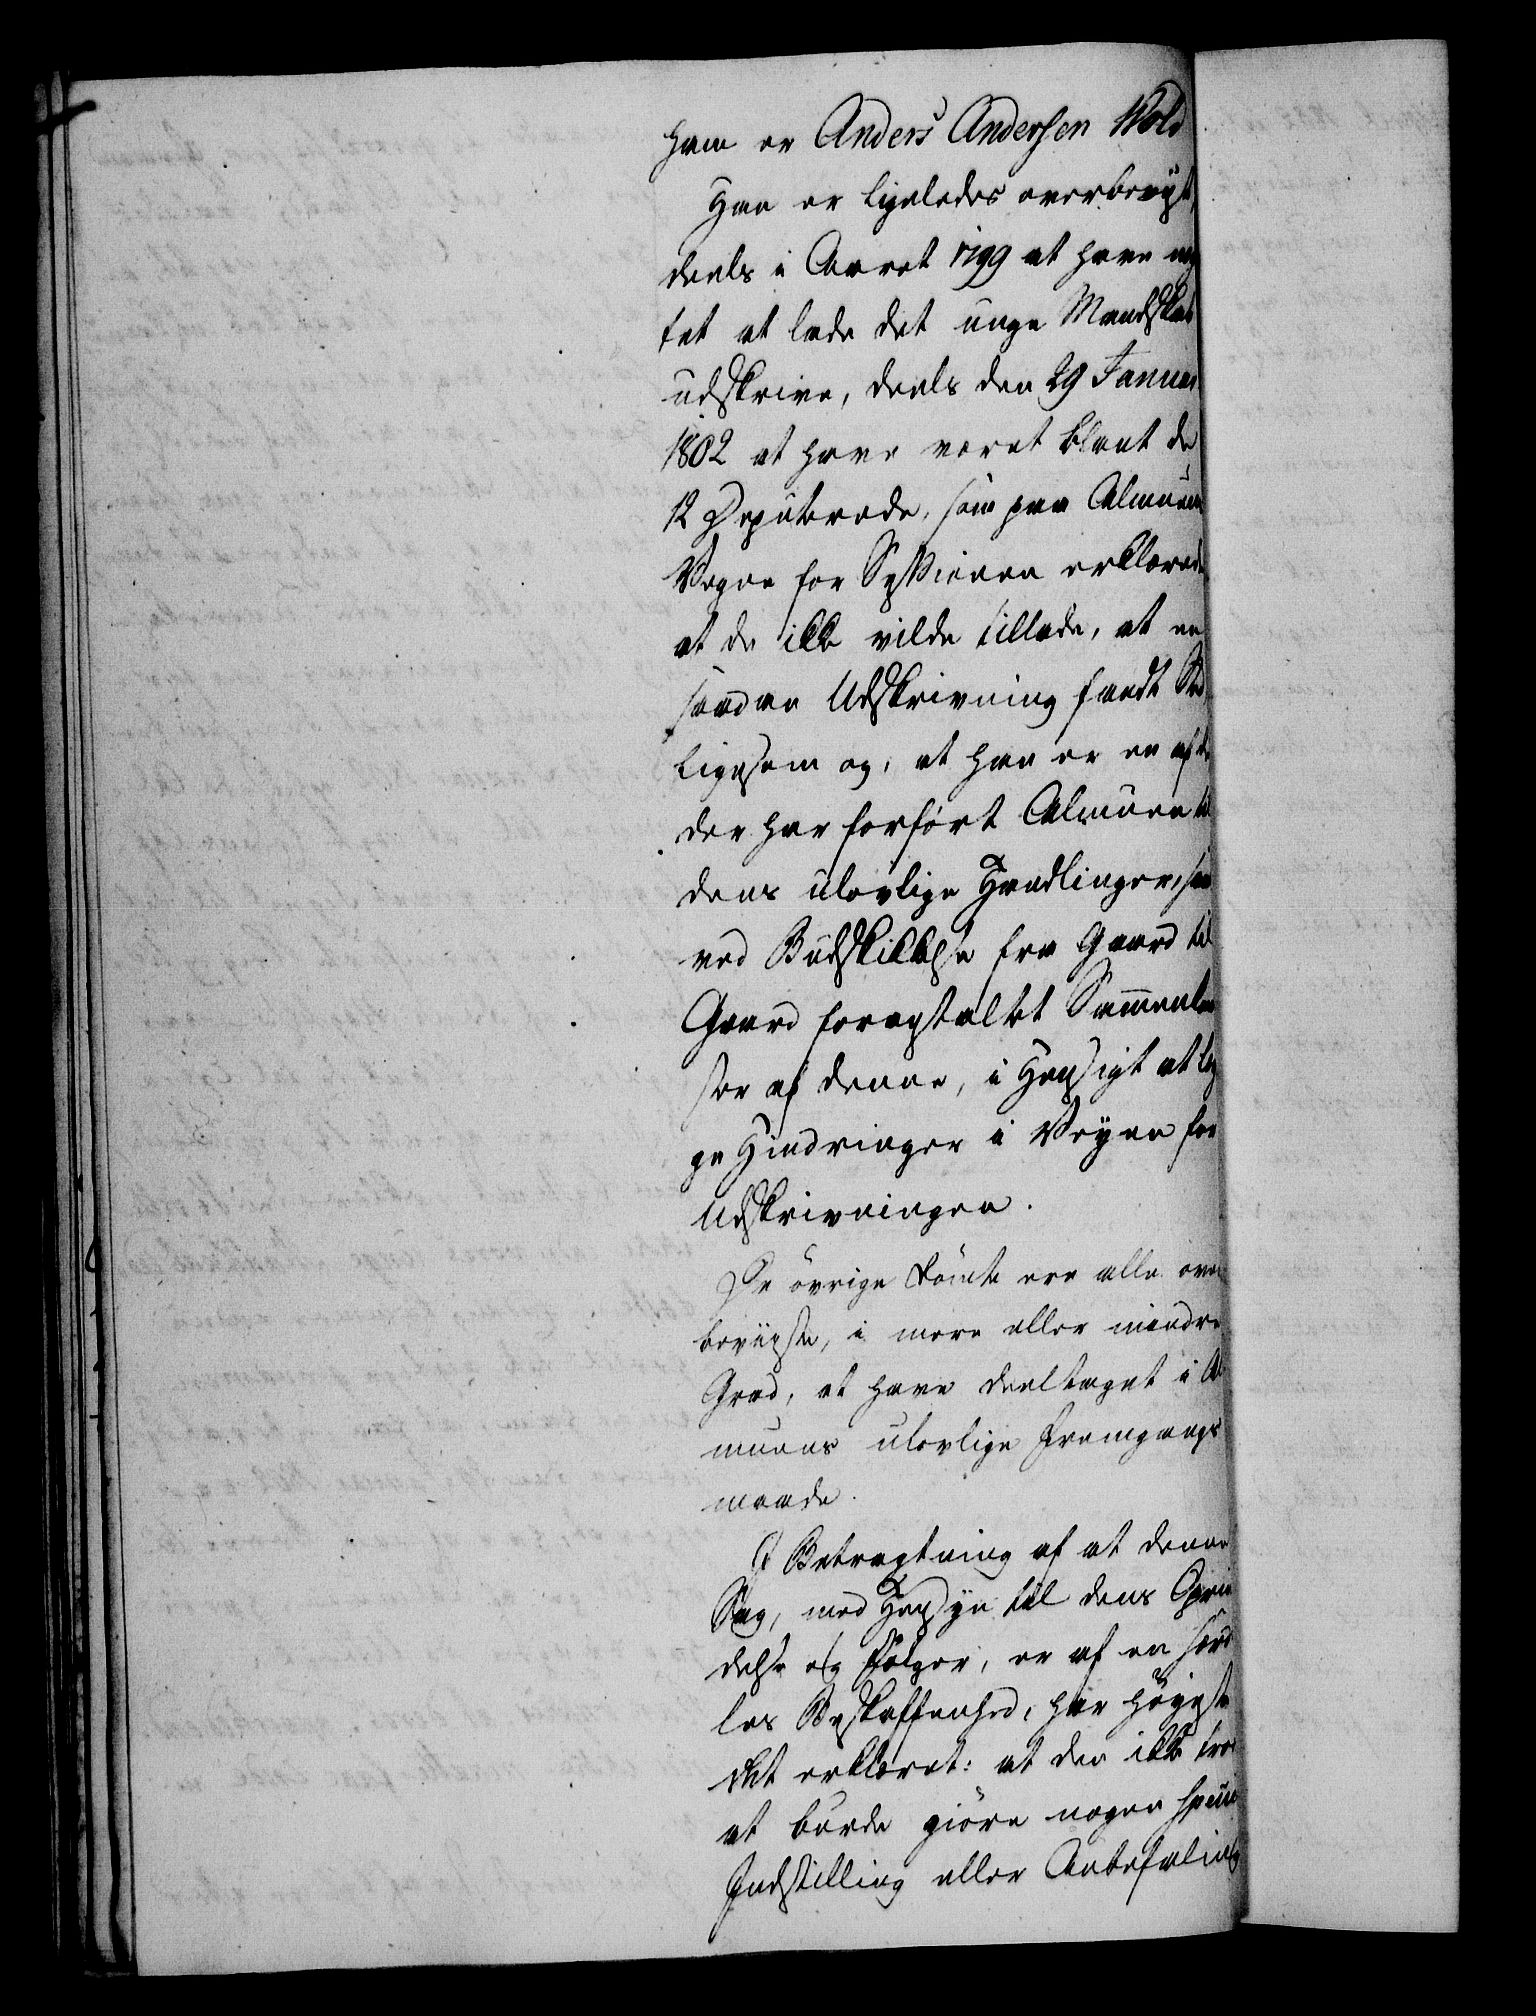 ham er Anders Andersen Wold
Han er ligeledes overbeviist,
deels i Aaret 1799 at have næg
tet at lade det unge Mandskab
udskrive, deels den 29 Januar
1802 at have været blant de
12 Deputerede, som paa Almuens
Vegne for Sessionen erklærede
at de ikke vilde tillade, at en
saadan Udskrivning fandt Sted
ligesom og, at han er en af de
der har forført Almuen til
dens ulovlige Handlinger, som
ved Budskikkelse fra Gaard til
Gaard foranstaltet Sammenkom
ster af denne, i Hensigt at læg
ge Hindringer i Veyen for
Udskrivningen.
De øvrige Dømte ere alle over
beviiste, i mere eller mindre
Grad, at have deeltaget i Al
muens ulovlige Fremgangs
maade.
I Betragtning af at denne
Sag, med Hensyn til dens Oprin
delse og Følger, er af en særde
les Beskaffenhed, har Høieste
Ret erklæret: at den ikke troer
at burde giøre nogen speciel
Indstilling eller Anbefaling